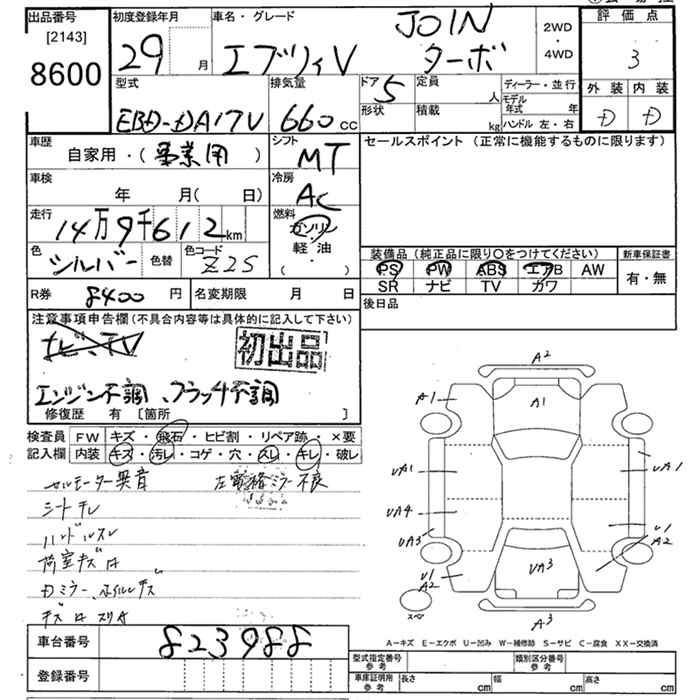 出品番号
[2143]
8600
初度登録年月
29 月
車名・グレード
エブリィV
JOIN
ターボ
2WD
・
4WD
評価点
3
外装 内装
D D
型式
EBD-DA17V
排気量
660 CC
ドア
5
形状
定員 人
積載 kg
ディーラー・並行
モデル年式 年
ハンドル 左・右
車歴
自家用・(事業用)
シフト
MT
セールスポイント (正常に機能するものに限ります)
車検
年 月( 日)
冷房
AC
走行
14万9千612km
燃料
ガソリン
軽・油
( )
色
シルバー
色替
色コード
Z2S
装備品 (純正品に限り〇をつけてください)
PS PW ABS エアB AW
SR ナビ TV カワ
新車保証書
有・無
R券
8400 円
名変期限 月 日
後日品
注意事項申告欄(不具合内容等は具体的に記入して下さい)
ナビ、TV
初出品
エンジン不調、クラッチ不調
修復歴 有 [箇所 ]
検査員 FW キズ・飛石・ヒビ割・リペア跡・×要
記入欄 内装 キズ・汚レ・コゲ・穴・スレ・キレ・破レ
セルモーター異音 左電格ミラー不良
シートキレ
ハンドルスレ
荷室キズ
A2
A1
A1
UA1
UA1
UA4
UA3
U1
A2
U1
A2
UA3
A3
スペア
A-キズ E-エクボ U-凹み W-補修跡 S-サビ C-腐食 XX-交換済
車台番号
823988
登録番号
型式指定番号
参考
類別区分番号
参考
車庫証明用
参考
長さ cm
幅 cm
高さ cm